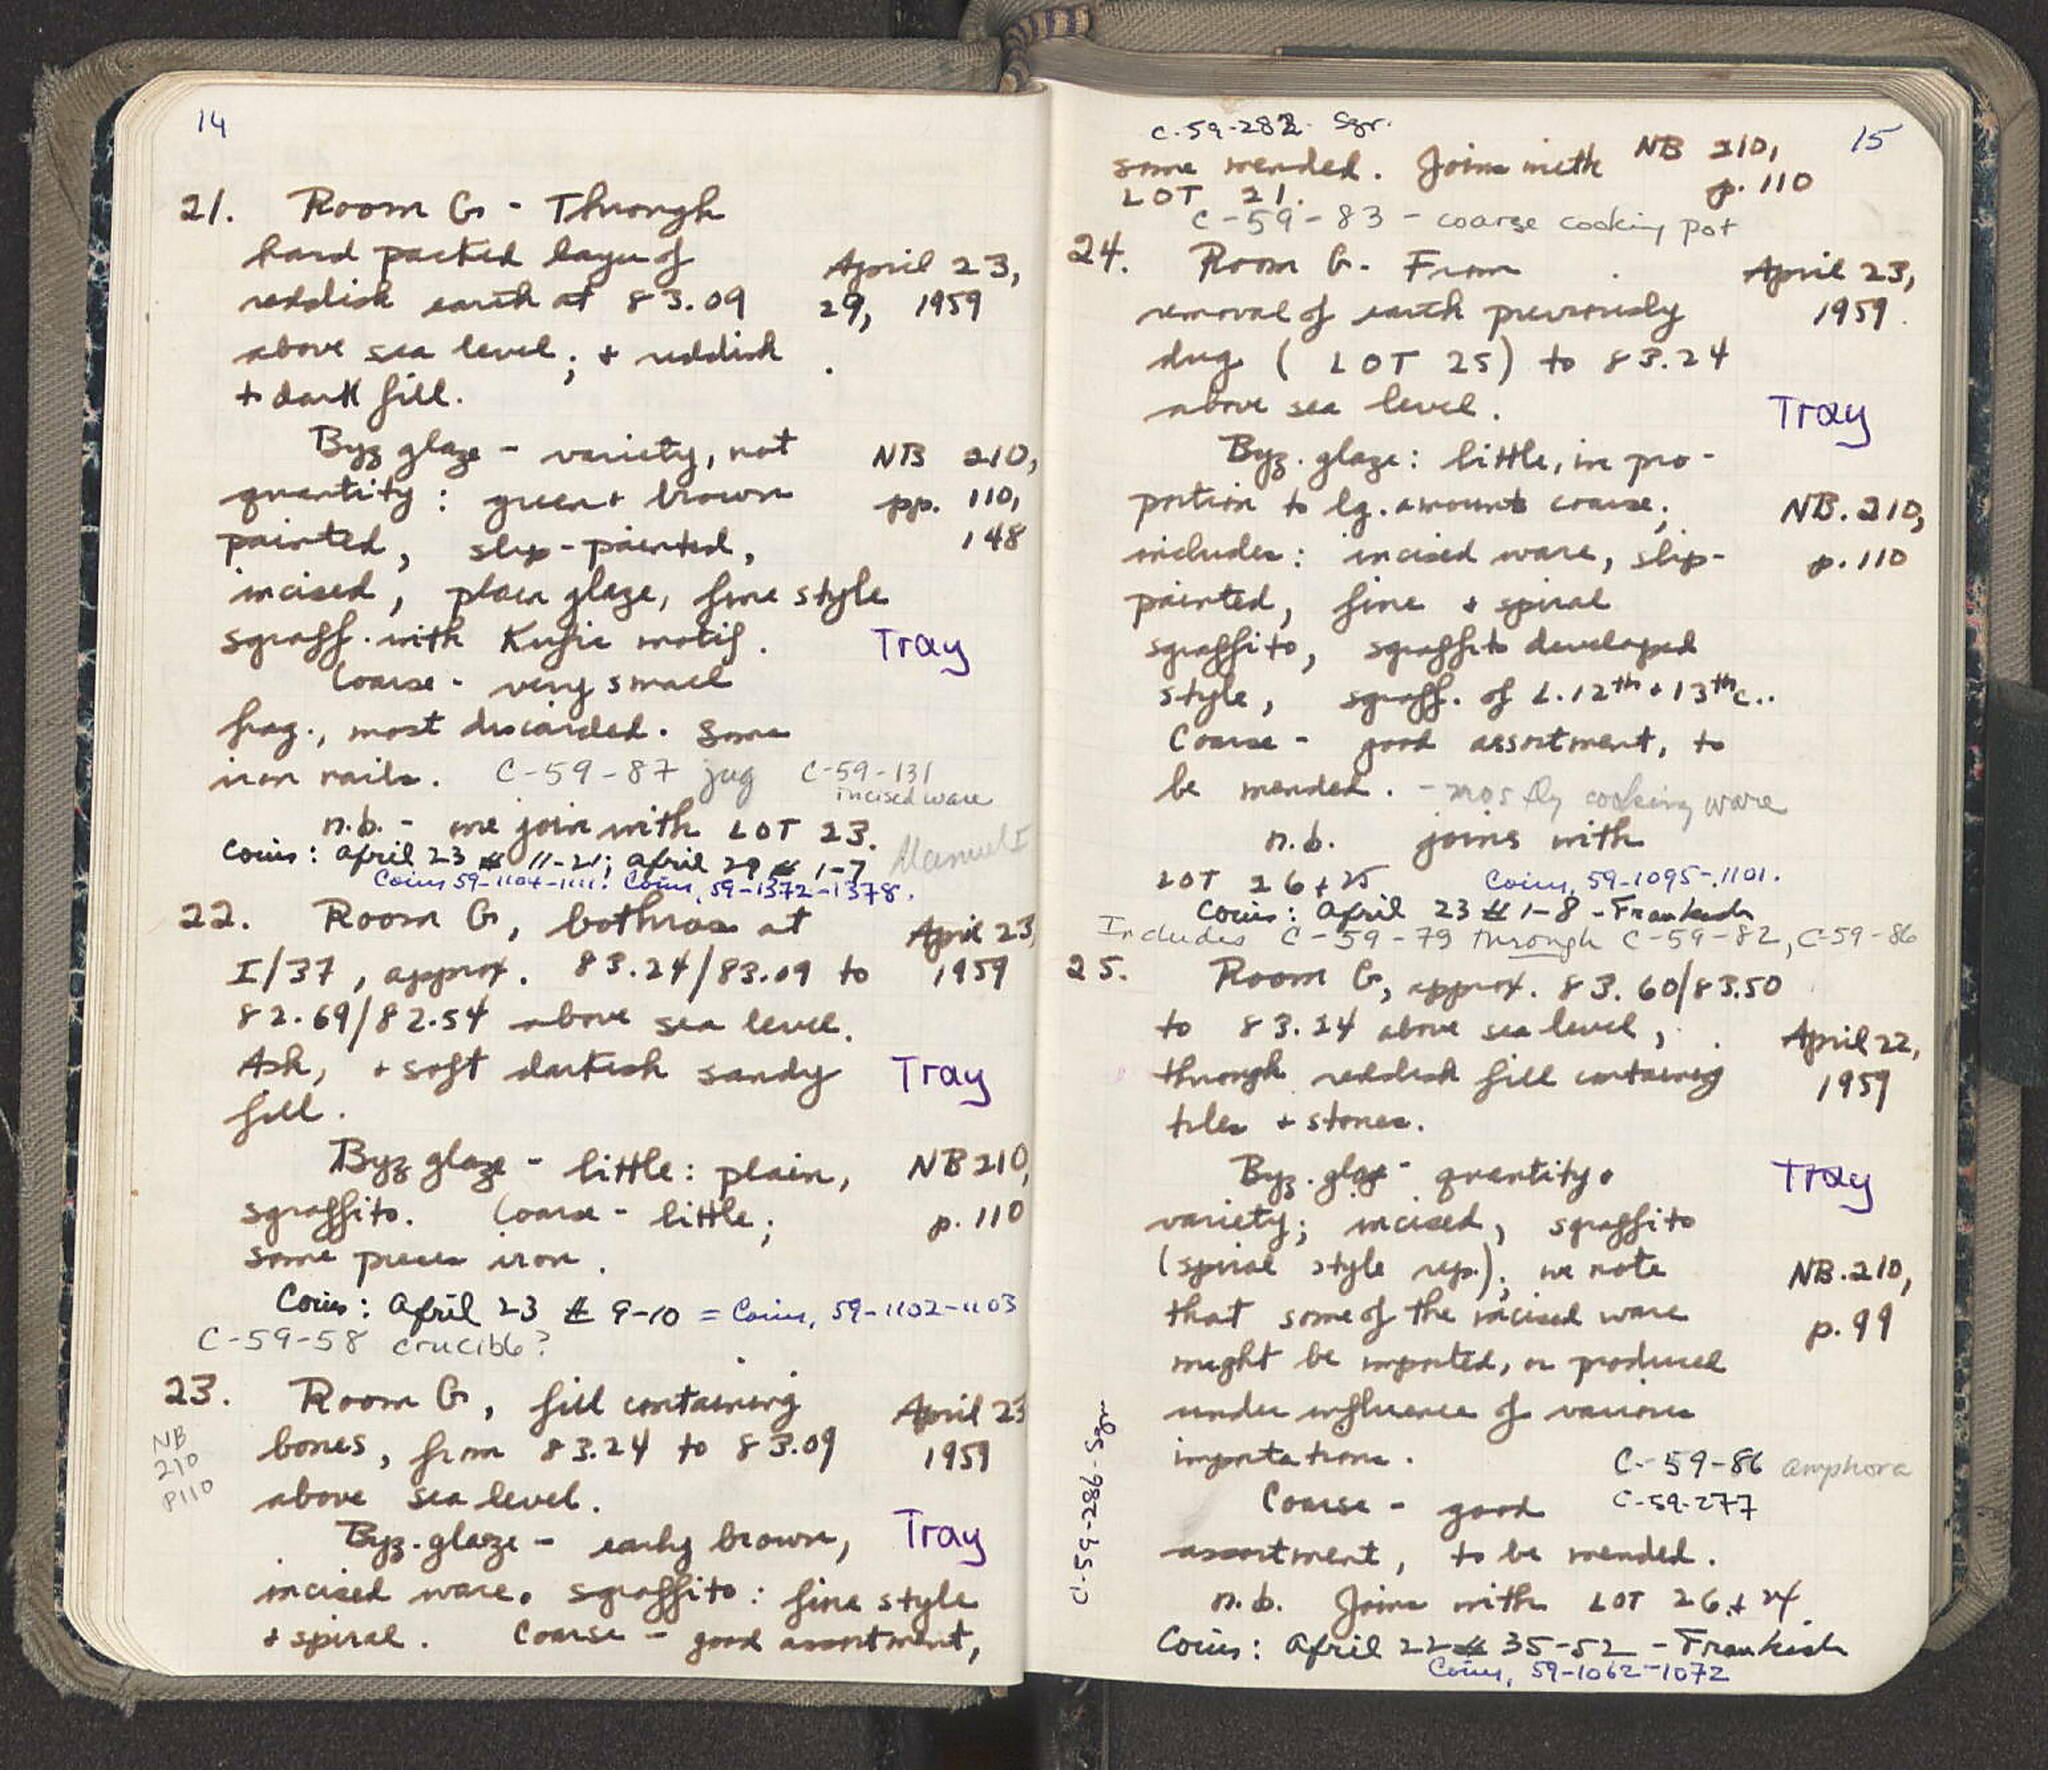 14
21. Room G - Through
hard packed layer of
reddish earth at 83.09
April 23,
29, 1959
above sea level; + reddish
+ dark fill.
Byz glaze - variety, not
quantity: green + brown
painted, slip-painted,
NB 210,
pp. 110,
148
incised, plain glaze, fine style
sgraff. with Kufic motif.
Tray
Coarse - very small
frag., most discarded. Some
iron nails. C-59-87 jug C-59-131
incised ware
n.b. - one join with LOT 23.
Coins: April 23 # 11-21; April 29 # 1-7 Manuel I
Coins 59-1104-1111. Coins, 59-1372-1378.
22. Room G, bothros at
I/37, approx. 83.24/83.09 to
April 23,
1959
82.69/82.54 above sea level.
Ash, + soft darkish sandy
fill.
Tray
Byz glaze - little: plain,
sgraffito. Coarse - little;
NB 210,
p. 110
some pieces iron.
Coins: April 23 # 9-10 = Coins, 59-1102-1103
C-59-58 crucible?
23. Room G, fill containing
bones, from 83.24 to 83.09
April 23
1959
NB
210
P110
above sea level.
Byz. glaze - early brown,
Tray
incised ware. sgraffito: fine style
+ spiral. Coarse - good assortment,
15
C-59-282 Sgr.
some mended. Joins with
LOT 21.
NB 210,
p. 110
C-59-83 - coarse cooking pot
24. Room G. From
removal of earth previously
April 23,
1959.
dug (LOT 25) to 83.24
above sea level.
Tray
Byz. glaze: little, in pro-
portion to lg. amount coarse;
includes: incised ware, slip-
NB. 210,
p. 110
painted, fine + spiral
sgraffito, sgraffito developed
style, sgraff. of L. 12th + 13th c..
Coarse - good assortment, to
be mended. - mostly cooking ware
n.b. joins with
LOT 26 + 25
Coins, 59-1095-1101.
Coins: April 23 # 1-8 - Frankish
Includes C-59-79 through C-59-82, C-59-86
25. Room G, approx. 83.60/83.50
to 83.24 above sea level,
through reddish fill containing
April 22,
1959
tiles + stones.
Byz. glaze - quantity.
Tray
variety; incised, sgraffito
(spiral style rep.); we note
that some of the incised ware
NB. 210,
p. 99
might be imported, or produced
under influence of various
importations.
C-59-86 amphora
C-59-277
Coarse - good
assortment, to be mended.
n.b. Joins with LOT 26 + 24.
Coins: April 22 # 35-52 - Frankish
Coins, 59-1062-1072
C-59-286-Sgr.